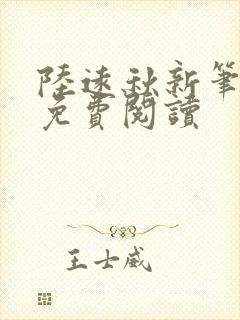 陸遠秋新筆
免費閱讀
王士威